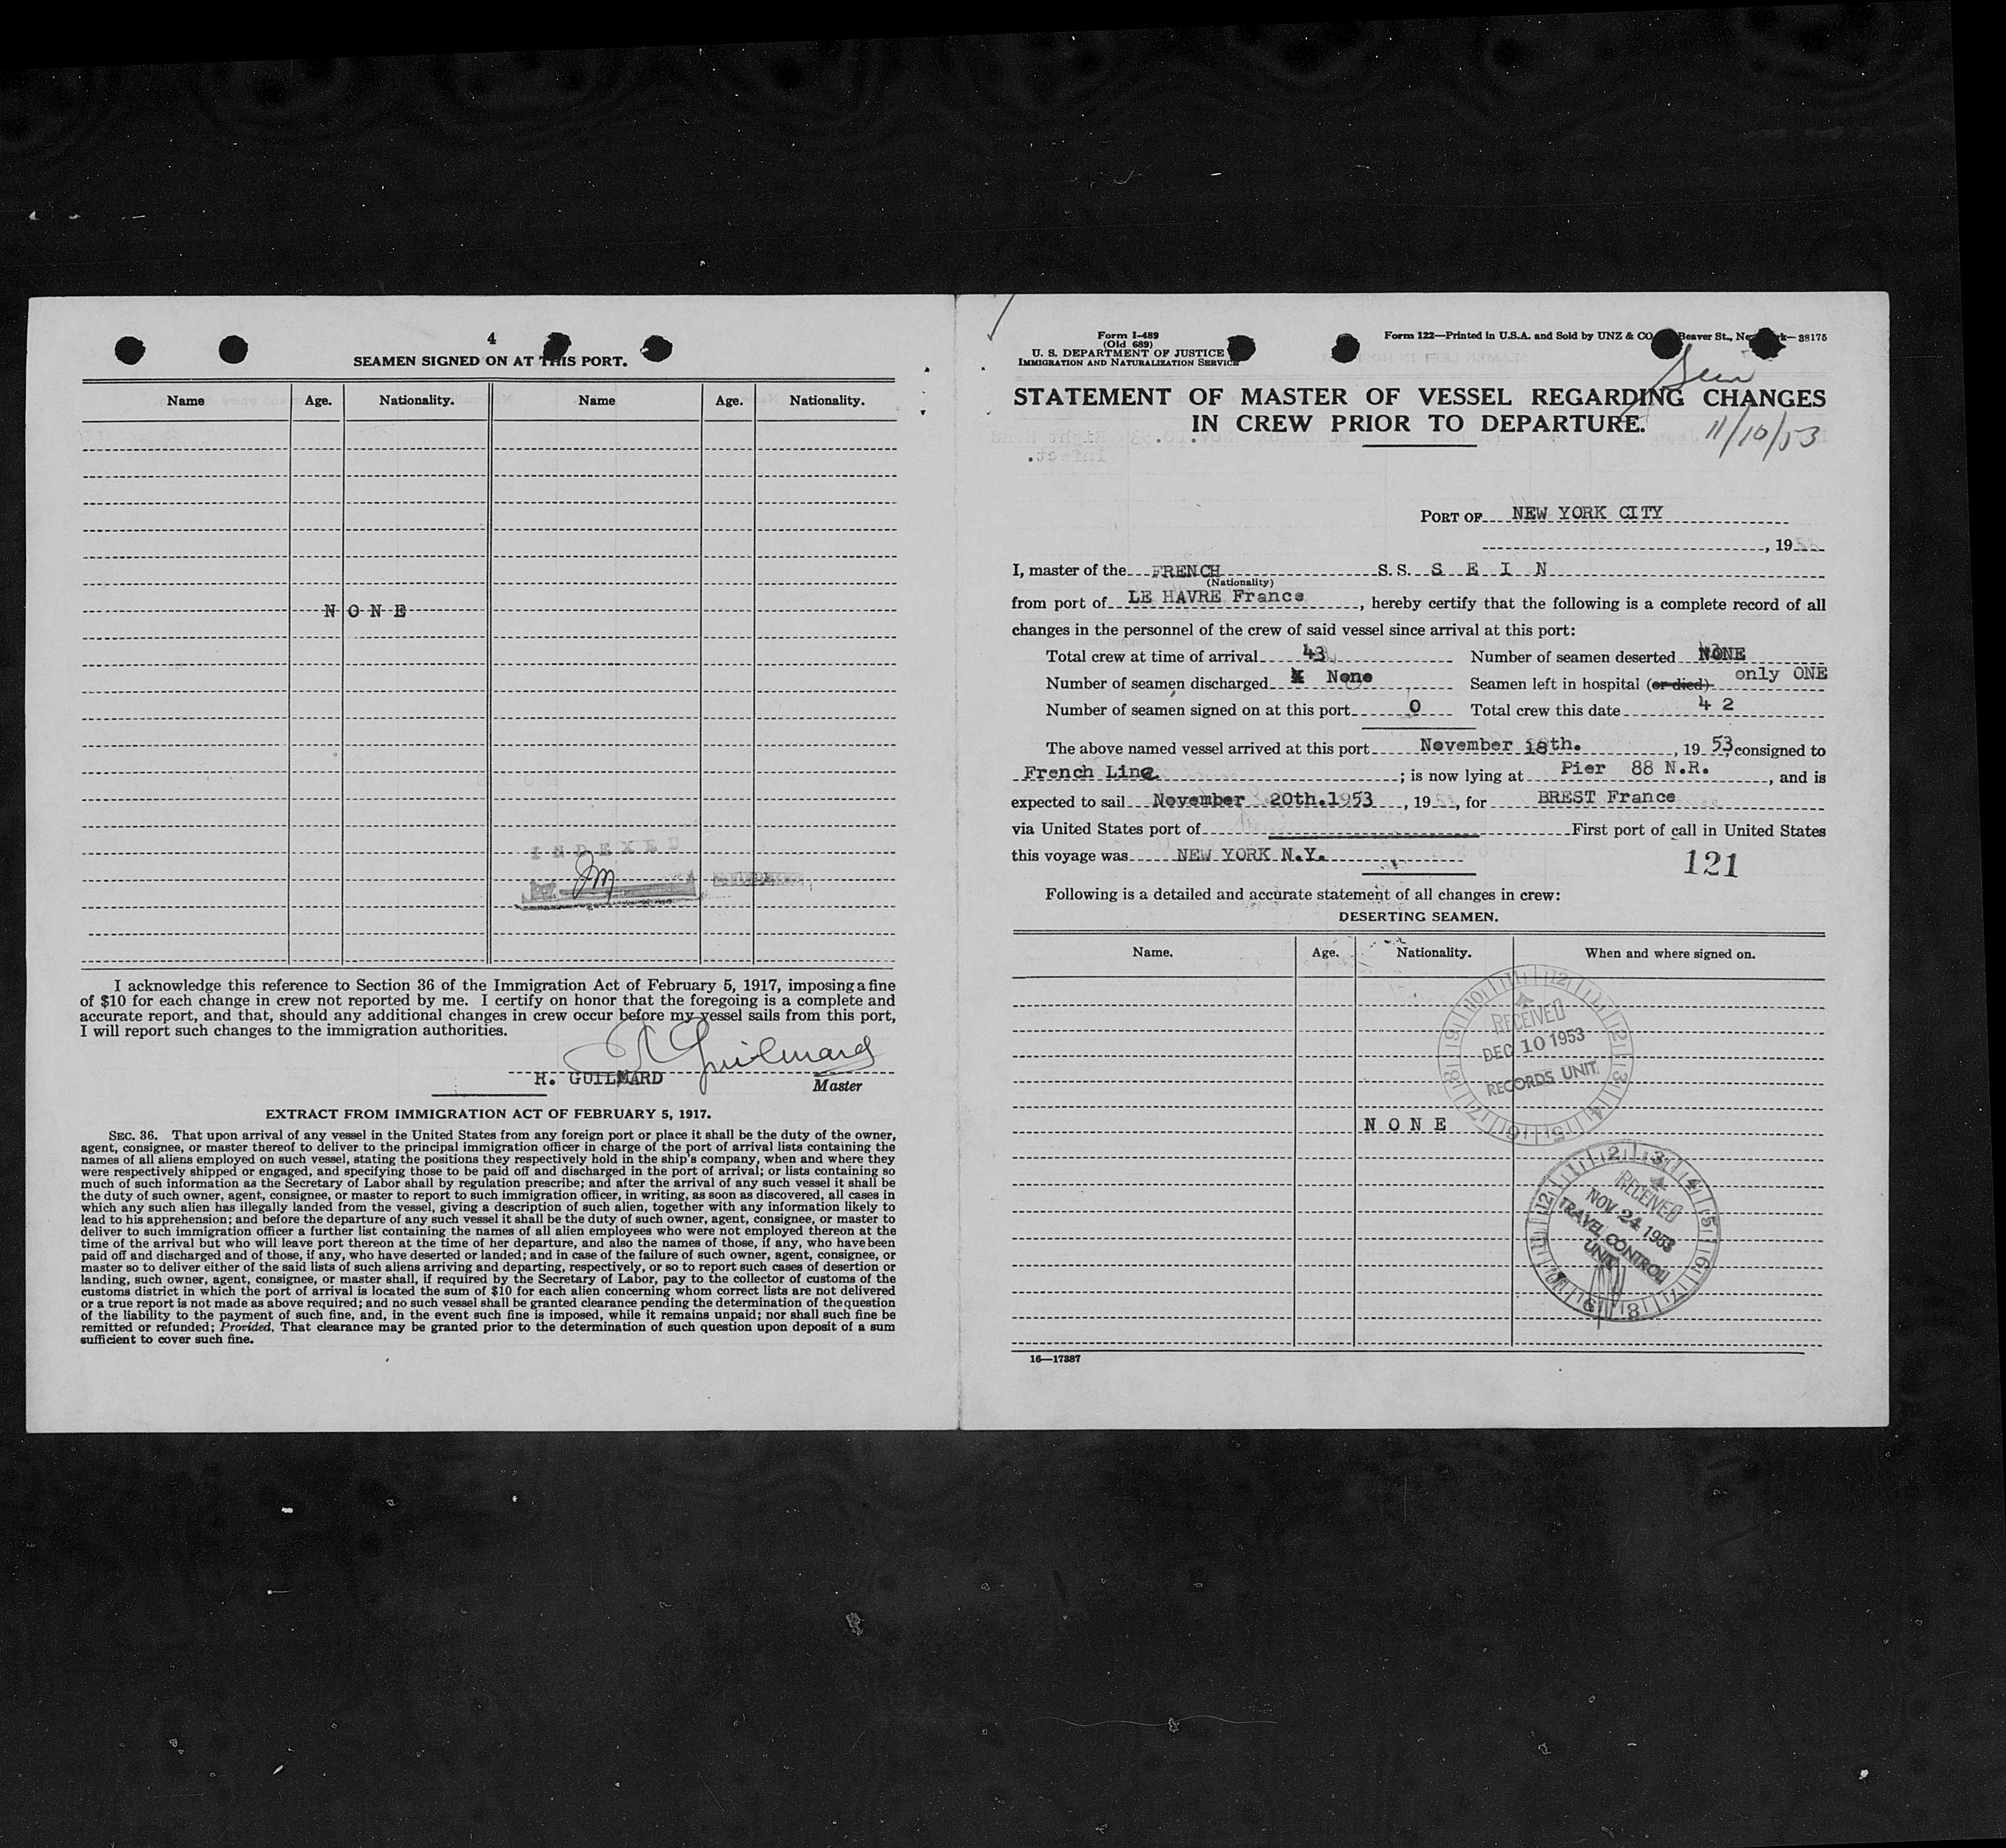 4
SEAMEN SIGNED ON AT THIS PORT.
Name Age. Nationality. Name Age. Nationality.
N O N E
INDEXED
I acknowledge this reference to Section 36 of the Immigration Act of February 5, 1917, imposing a fine
of $10 for each change in crew not reported by me. I certify on honor that the foregoing is a complete and
accurate report, and that, should any additional changes in crew occur before my vessel sails from this port,
I will report such changes to the immigration authorities.
R. GUILMARD
Master
EXTRACT FROM IMMIGRATION ACT OF FEBRUARY 5, 1917.
SEC. 36. That upon arrival of any vessel in the United States from any foreign port or place it shall be the duty of the owner,
agent, consignee, or master thereof to deliver to the principal immigration officer in charge of the port of arrival lists containing the
names of all aliens employed on such vessel, stating the positions they respectively hold in the ship's company, when and where they
were respectively shipped or engaged, and specifying those to be paid off and discharged in the port of arrival; or lists containing so
much of such information as the Secretary of Labor shall by regulation prescribe; and after the arrival of any such vessel it shall be
the duty of such owner, agent, consignee, or master to report to such immigration officer, in writing, as soon as discovered, all cases in
which any such alien has illegally landed from the vessel, giving a description of such alien, together with any information likely to
lead to his apprehension; and before the departure of any such vessel it shall be the duty of such owner, agent, consignee, or master to
deliver to such immigration officer a further list containing the names of all alien employees who were not employed thereon at the
time of the arrival but who will leave port thereon at the time of her departure, and also the names of those, if any, who have been
paid off and discharged and of those, if any, who have deserted or landed; and in case of the failure of such owner, agent, consignee, or
master so to deliver either of the said lists of such aliens arriving and departing, respectively, or so to report such cases of desertion or
landing, such owner, agent, consignee, or master shall, if required by the Secretary of Labor, pay to the collector of customs of the
customs district in which the port of arrival is located the sum of $10 for each alien concerning whom correct lists are not delivered
or a true report is not made as above required; and no such vessel shall be granted clearance pending the determination of the question
of the liability to the payment of such fine, and, in the event such fine is imposed, while it remains unpaid; nor shall such fine be
remitted or refunded; Provided, That clearance may be granted prior to the determination of such question upon deposit of a sum
sufficient to cover such fine.
Form I-489
(Old 689)
U. S. DEPARTMENT OF JUSTICE
IMMIGRATION AND NATURALIZATION SERVICE
Form 122—Printed in U.S.A. and Sold by UNZ & CO Beaver St., New York—38175
STATEMENT OF MASTER OF VESSEL REGARDING CHANGES
IN CREW PRIOR TO DEPARTURE.
11/10/53
PORT OF NEW YORK CITY
, 19
I, master of the FRENCH S.S. S E I N
(Nationality)
from port of LE HAVRE France, hereby certify that the following is a complete record of all
changes in the personnel of the crew of said vessel since arrival at this port:
Total crew at time of arrival 43 Number of seamen deserted NONE
Number of seamen discharged None Seamen left in hospital (or died) only ONE
Number of seamen signed on at this port 0 Total crew this date 4 2
The above named vessel arrived at this port November 18th., 19 53, consigned to
French Line; is now lying at Pier 88 N.R., and is
expected to sail November 20th.1953, 19 , for BREST France
via United States port of First port of call in United States
this voyage was NEW YORK N.Y.
121
Following is a detailed and accurate statement of all changes in crew:
DESERTING SEAMEN.
Name. Age. Nationality. When and where signed on.
RECEIVED
DEC 10 1953
RECORDS UNIT
N O N E
RECEIVED
NOV 24 1953
TRAVEL CONTROL
UNIT
16—17887